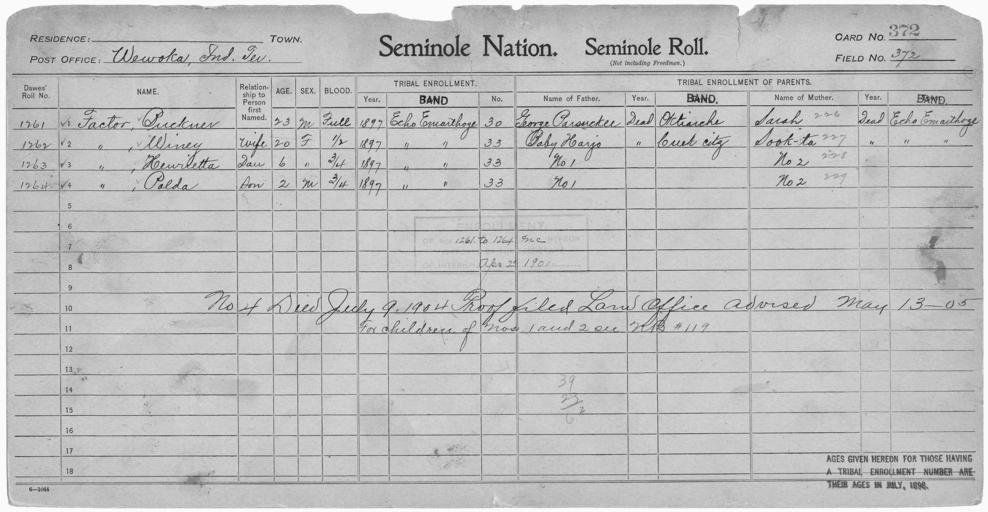 RESIDENCE: TOWN.
POST OFFICE: Wewoka, Ind. Ter.
Seminole Nation. Seminole Roll.
(Not including Freedmen.)
CARD NO. 372
FIELD NO. 372
Dawes' Roll No. NAME. Relationship to Person first Named. AGE. SEX. BLOOD. TRIBAL ENROLLMENT. TRIBAL ENROLLMENT OF PARENTS.
Year. BAND No. Name of Father. Year. BAND. Name of Mother. Year. BAND.
1261 √1 Factor, Buckner 23 M Full 1897 Echo Emaithoge 30 George Dead Sarah 226 Dead Echo Emaithoge
1262 √2 " , Winey Wife 20 F 1/2 1897 " " 33 Baby Harjo " Creek city Sook-ta 227 " " "
1263 √3 " , Henrietta Dau 6 " 3/4 1897 " " 33 No 1 No 2 228
1264 √4 " , Polda Son 2 M 3/4 1897 " " 33 No 1 No 2 229
5
6
7 1261 to 1264 Inc
8 Apr 2
9
10 No 4 Died July 9, 1904 Proof filed Land Office advised May 13-05
11 For children of Nos 1 and 2 see NB #119
12
13
14 39
15
16
17
18
6-2064
AGES GIVEN HEREON FOR THOSE HAVING
A TRIBAL ENROLLMENT NUMBER ARE
THEIR AGES IN JULY, 1898.